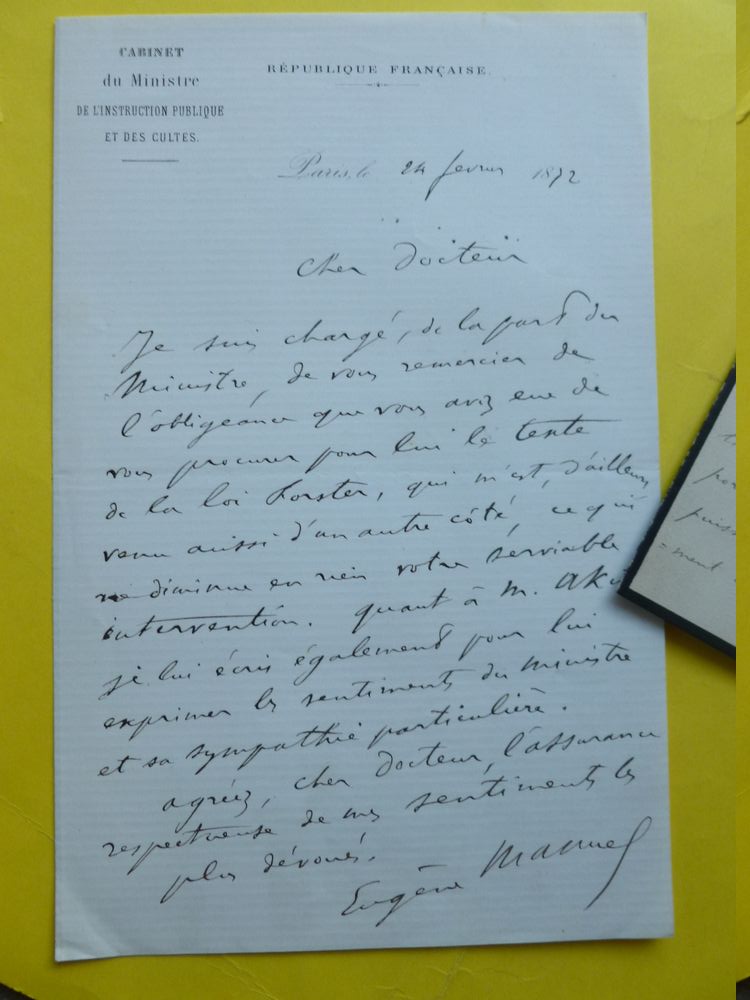 CABINET
du Ministre
DE L'INSTRUCTION PUBLIQUE
ET DES CULTES.
RÉPUBLIQUE FRANÇAISE.
Paris, le 24 fevrier 1872
Cher Docteur
Je suis chargé, de la part du
Ministre, de vous remercier de
l'obligeance que vous avez eue de
vous procurer pour lui le texte
de la loi Forster, qui m'est, d'ailleurs,
venu aussi d'un autre côté, ce qui
ne diminue en rien votre serviable
intervention. quant à M.
je lui écris également pour lui
exprimer les sentiments du ministre
et sa sympathie particulière.
agréez, cher Docteur, l'assurance
respectueuse de mes sentiments les
plus dévoués.
Eugène Manuel